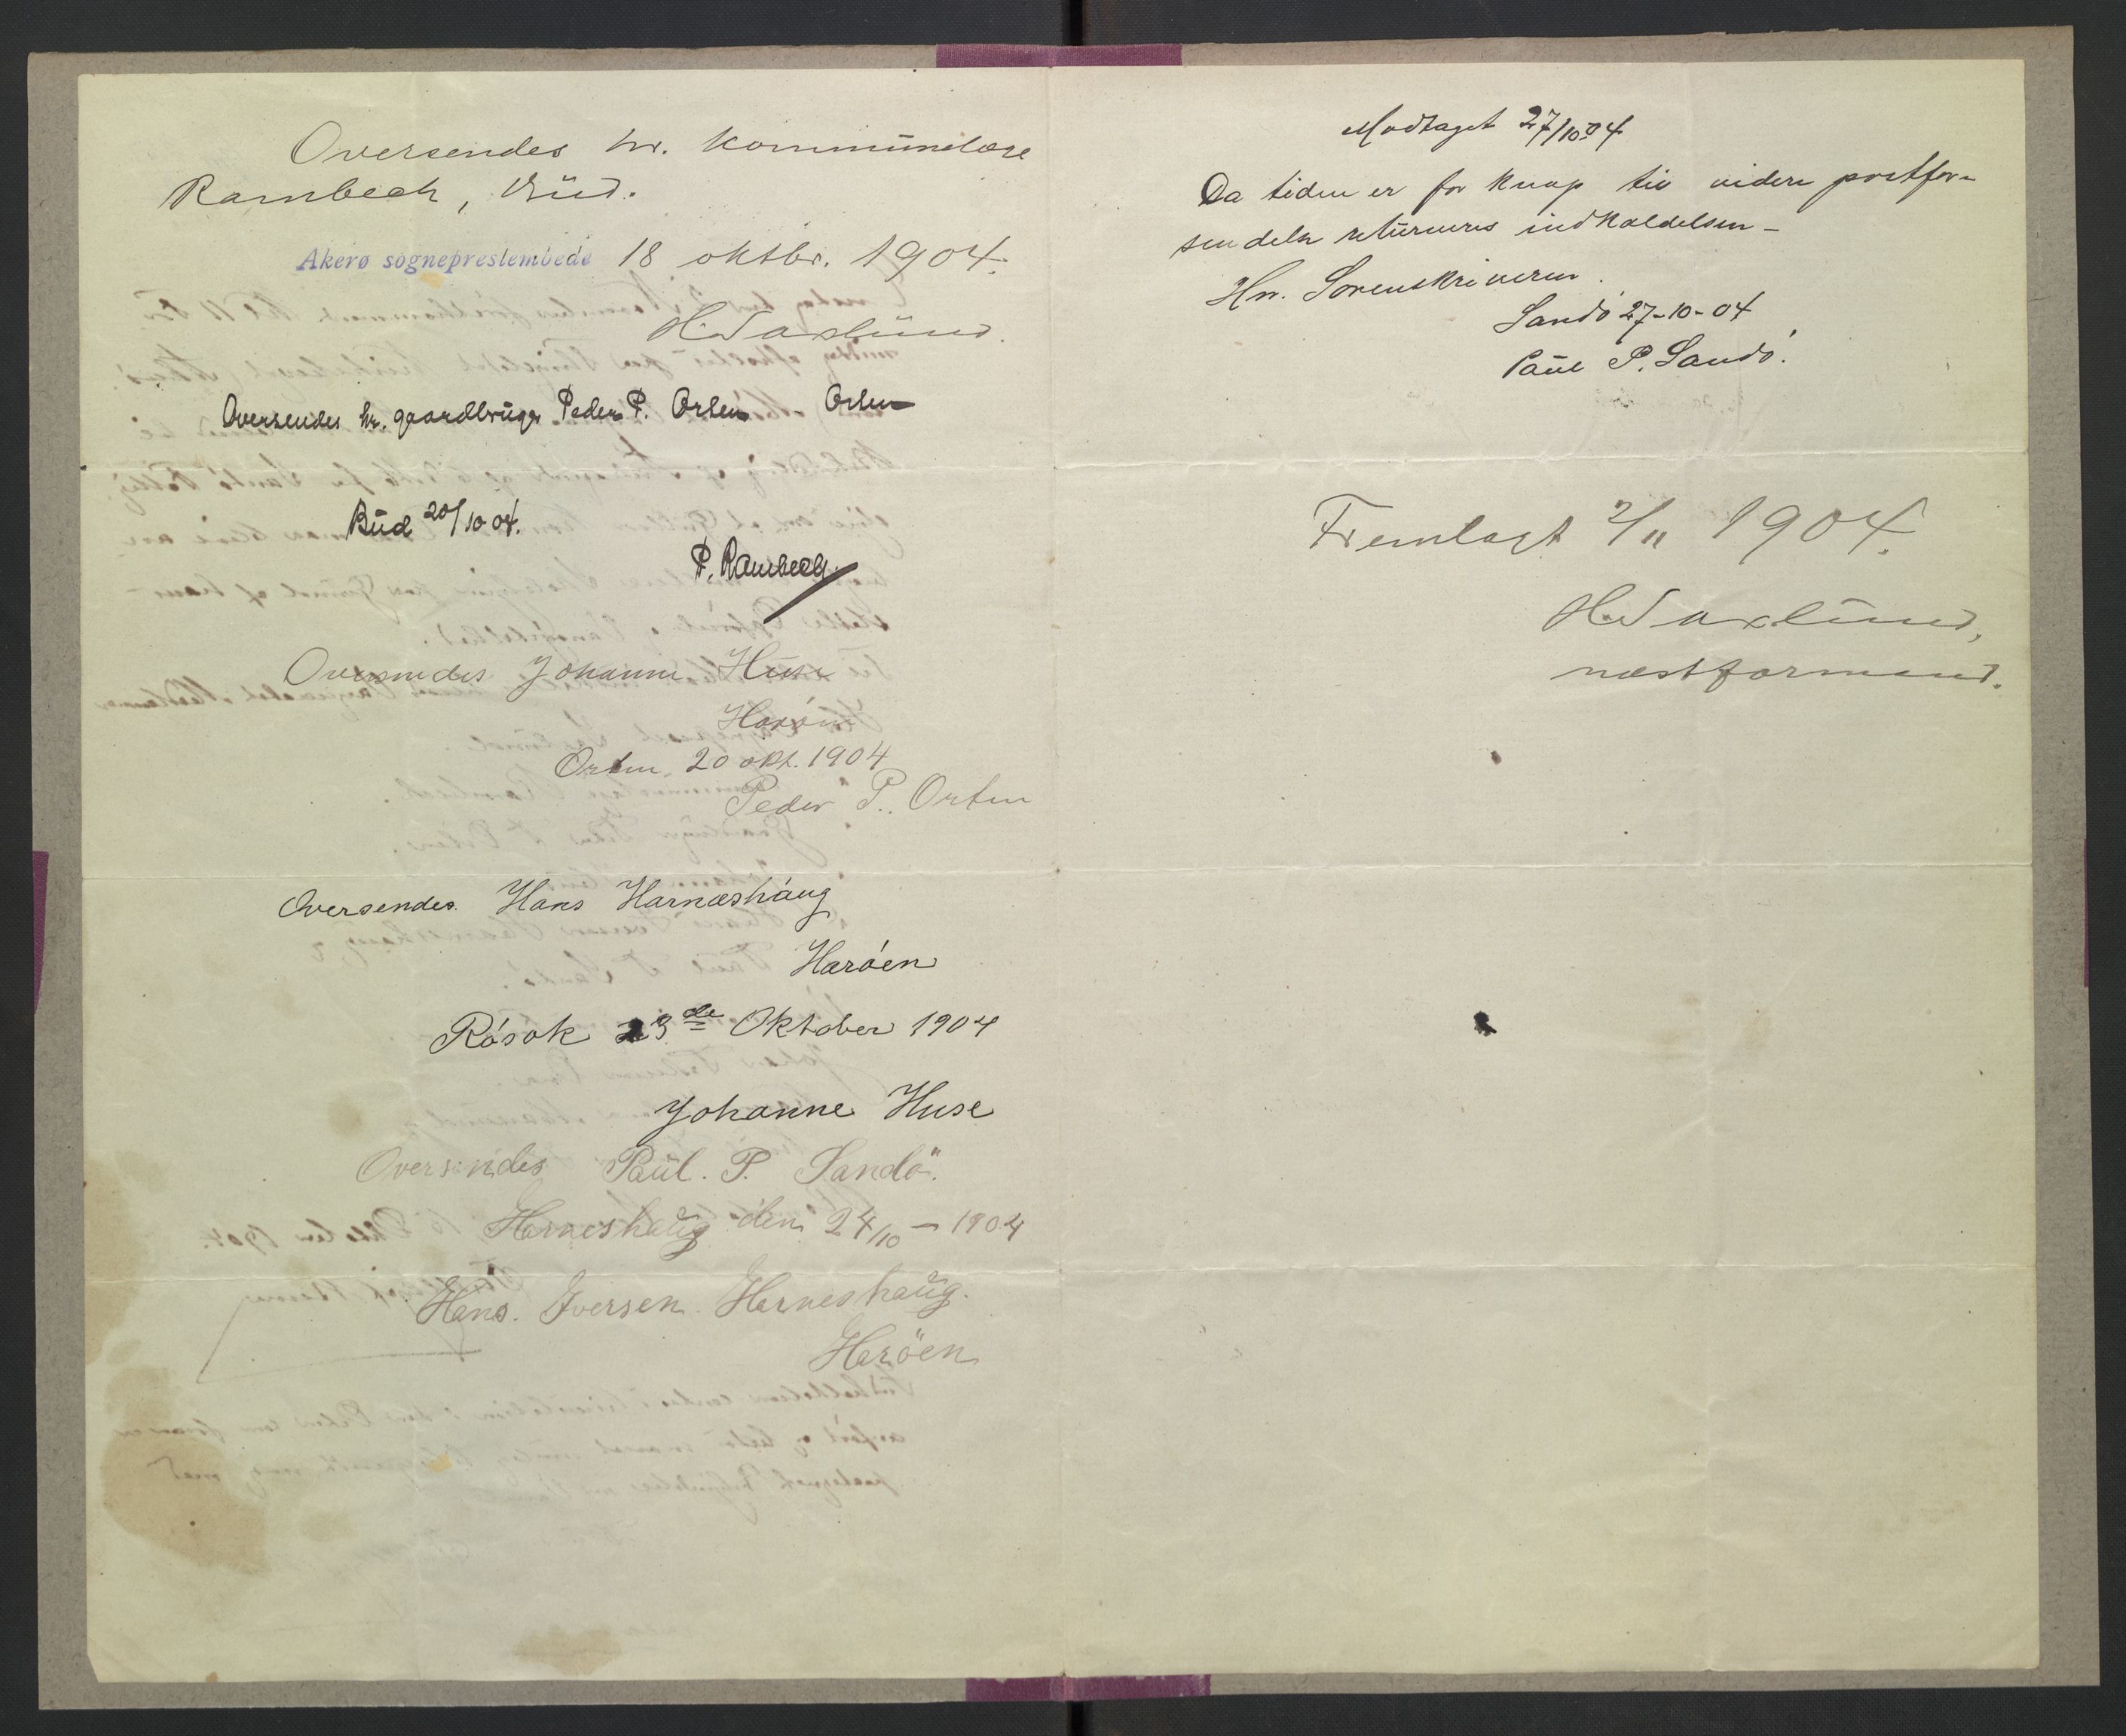 Oversendes hr. kommunelæge
Rambech, Bud.
Akerø sogneprestembede 18 oktbr. 1904.
H. Saxlund.
Oversendes hr. gaardbruger Peder P. Orten Orten
Bud 20/10 04.
P. Rambech
Oversendes Johanne Huse
Harøen
Orten 20 okt. 1904
Peder P. Orten
Oversendes Hans Harnæshaug
Harøen
Røsok 23de Oktober 1904
Johanne Huse
Oversendes Paul. P. Sandö.
Harneshaug den 24/10 – 1904
Hans. Iversen. Harneshaug.
Haröen
Modtaget 27/10 04
Da tiden er for knap til videre postfor-
sendelse returneres indkaldelsen –
Hr. Sorenskriveren.
Sandö 27-10-04
Paul P. Sandö.
Fremlagt 2/11 1904.
H. Saxlund,
næstformand.